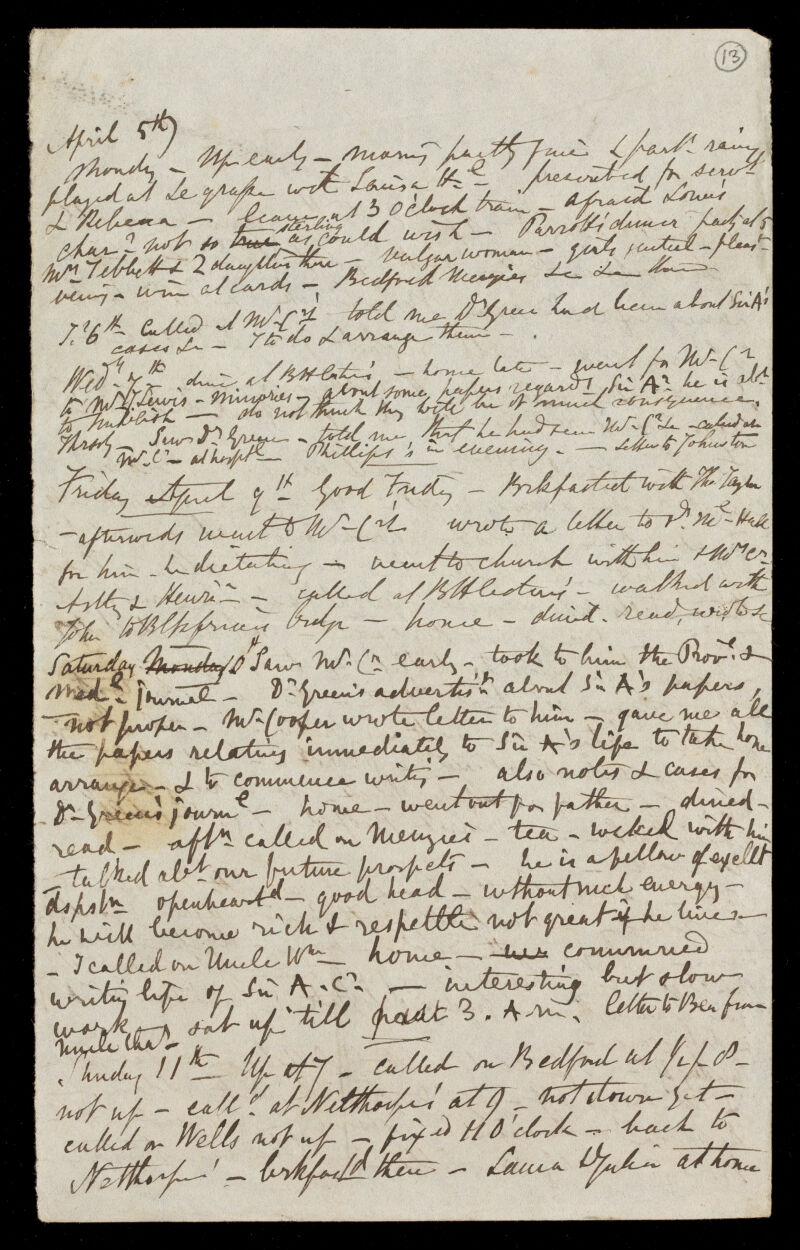 13
April 5th
Monday - Up early - morng partly fine & partly rainy
played at Le grasse with Louisa He - presented for servt
& Rebecca - leave at 3 O'clock train - afraid Louis
sterling
char? not so true as could wish - Parrott's dinner party at 5
Mrs Tebbett & 2 daughters there - vulgar woman - girls genteel - pleast
evening - won at cards - Bedford Menzies &c &c there
T. 6th Called at Mr C's told me Dr Green had been about Sir A's
cases &c - I to do & arrange them -
Wedy 7th dine at - home late - went for Mr Cr
to Mr Lewis - Minories - about some papers regardg Sir A. he is abt
to publish - do not think they will be of much consequence.
Thursdy - Saw Dr Green - told me, that he had seen Mr Cr &c - called on
Mr C - at hospl - Phillips's in evening. - letter to Johnston
Friday April 9th Good Friday - Brkfasted with Taylor
- afterwards went to Mr Cr's wrote a letter to Dr Hall
for him - he dictating - went to church with him & Mrs Cr
Astley & Henri - called at - walked with
John to Blkfriars bridge - home - dined. read, wrote &c
Saturday Monday 10th Saw Mr Cr early - took to him the Provl &
Medl Journal - Dr Green's advertist about Sir A's papers,
not proper - Mr Cooper wrote letter to him - gave me all
the papers relating immediately to Sir A's life to take home
arrange - & to commence writg - also notes & cases for
Dr Green's journl - home - went out for father - dined -
read - aftn called on Menzies - tea - walked with him
talked abt our future prospects - he is a fellow of exellt
dspstn openheartd - good head - without much energy -
he will become rich & respettble not great if he lives -
- I called on Uncle Wm - home - commenced
writing life of Sir A. Cr - interesting but slow
work - sat up till past 3. A.m. letter to Ben from
Uncle Chas
Sunday 11th Up at 7 - called on Bedford at 1/2 p 8 -
not up - calld at Nelthorpe's at 9 - not down yet -
called on Wells not up - fixed 11 O'clock - back to
Nelthorpe's - brkfastd there - Laura & Julia at home